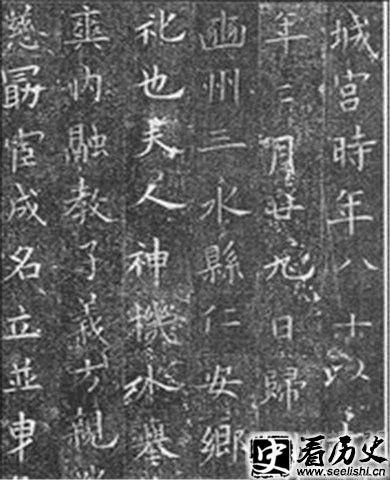 城宮時年八十以
年三月廿九日歸
豳州三水縣仁安鄉
礼也夫人神機
爽內融教子義方親
慈宦成名立並申
史 看历史
www.seelishi.cn